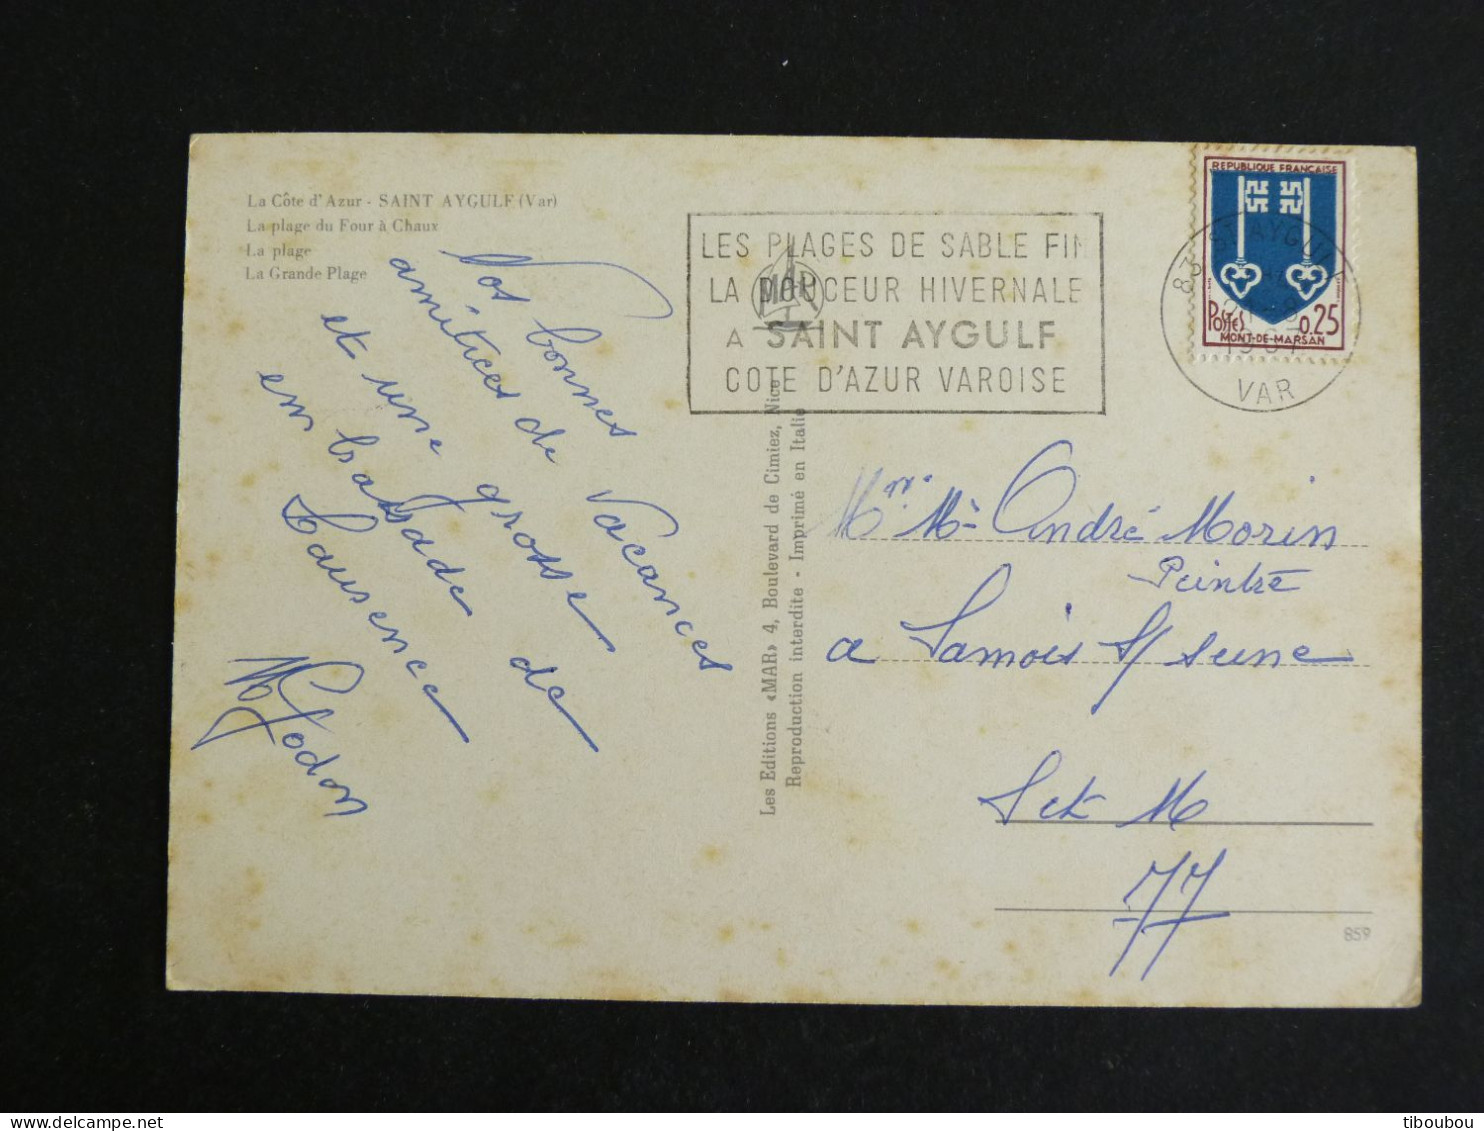 La Côte d'Azur - SAINT AYGULF (Var)
La plage du Four à Chaux
La plage
La Grande Plage
Nos bonnes vacances
amitices de
et une grosse
embassade de
Lausence
M Godon
Les Editions «MAR» 4, Boulevard de Cimiez, Nice
Reproduction interdite - Imprimé en Italie
MAR
LES PLAGES DE SABLE FIN
LA DOUCEUR HIVERNALE
A SAINT AYGULF
COTE D'AZUR VAROISE
REPUBLIQUE FRANÇAISE
POSTES 0,25
MONT-DE-MARSAN
83 ST AYGULF
1967
VAR
Mr. Me André Morin
Peintre
a Samois S/ Seine
Set M
77
859
tiboubou